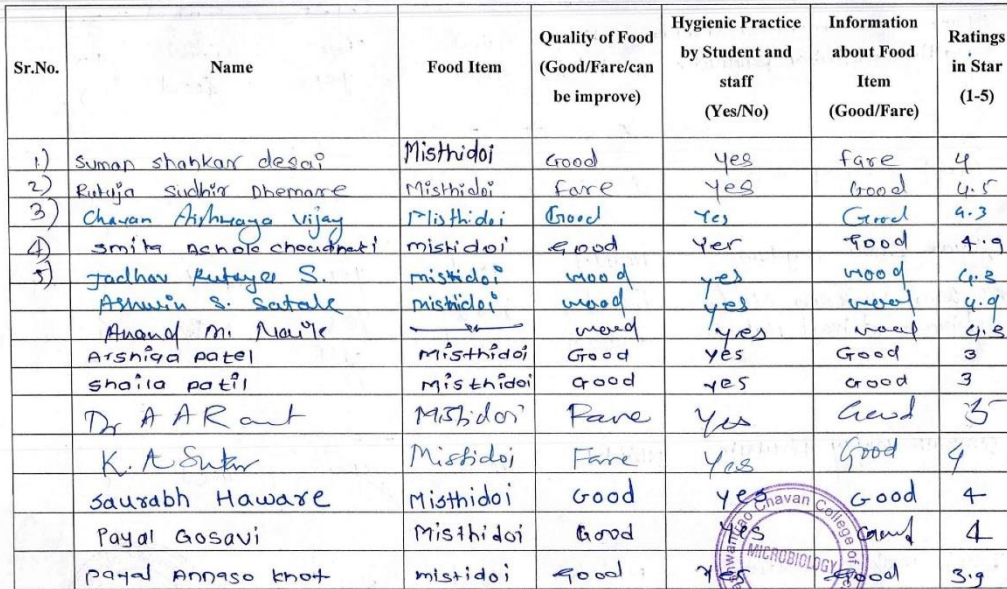 Sr.No. Name Food Item Quality of Food (Good/Fare/can be improve) Hygienic Practice by Student and staff (Yes/No) Information about Food Item (Good/Fare) Ratings in Star (1-5)
1) Suman shankar desai Misthidoi Good Yes fare 4
2) Rutuja Sudhir Dhemare Misthidoi Fare Yes Good 4.5
3) Chavan Vijay Misthidoi Good Yes Good 4.3
4) Smita Ashok mistidoi Good Yes Good 4.9
5) Jadhav S. mistidoi Good yes Good 4.3
Ashwin S. Satale mistidoi Good yes Good 4.9
Anand M. Naik Good yes Good 4.5
Arshiya patel Misthidoi Good Yes Good 3
shaila patil Misthidoi Good yes Good 3
Dr A A Raut Mistidoi Fare Yes Good 5
K. A Sutar Mistidoi Fare Yes Good 4
Saurabh Haware Misthidoi Good Yes Good 4
Payal Gosavi Misthidoi Good Yes Good 4
payal Annaso khot mistidoi Good Yes Good 3.9
Chavan College of
MICROBIOLOGY